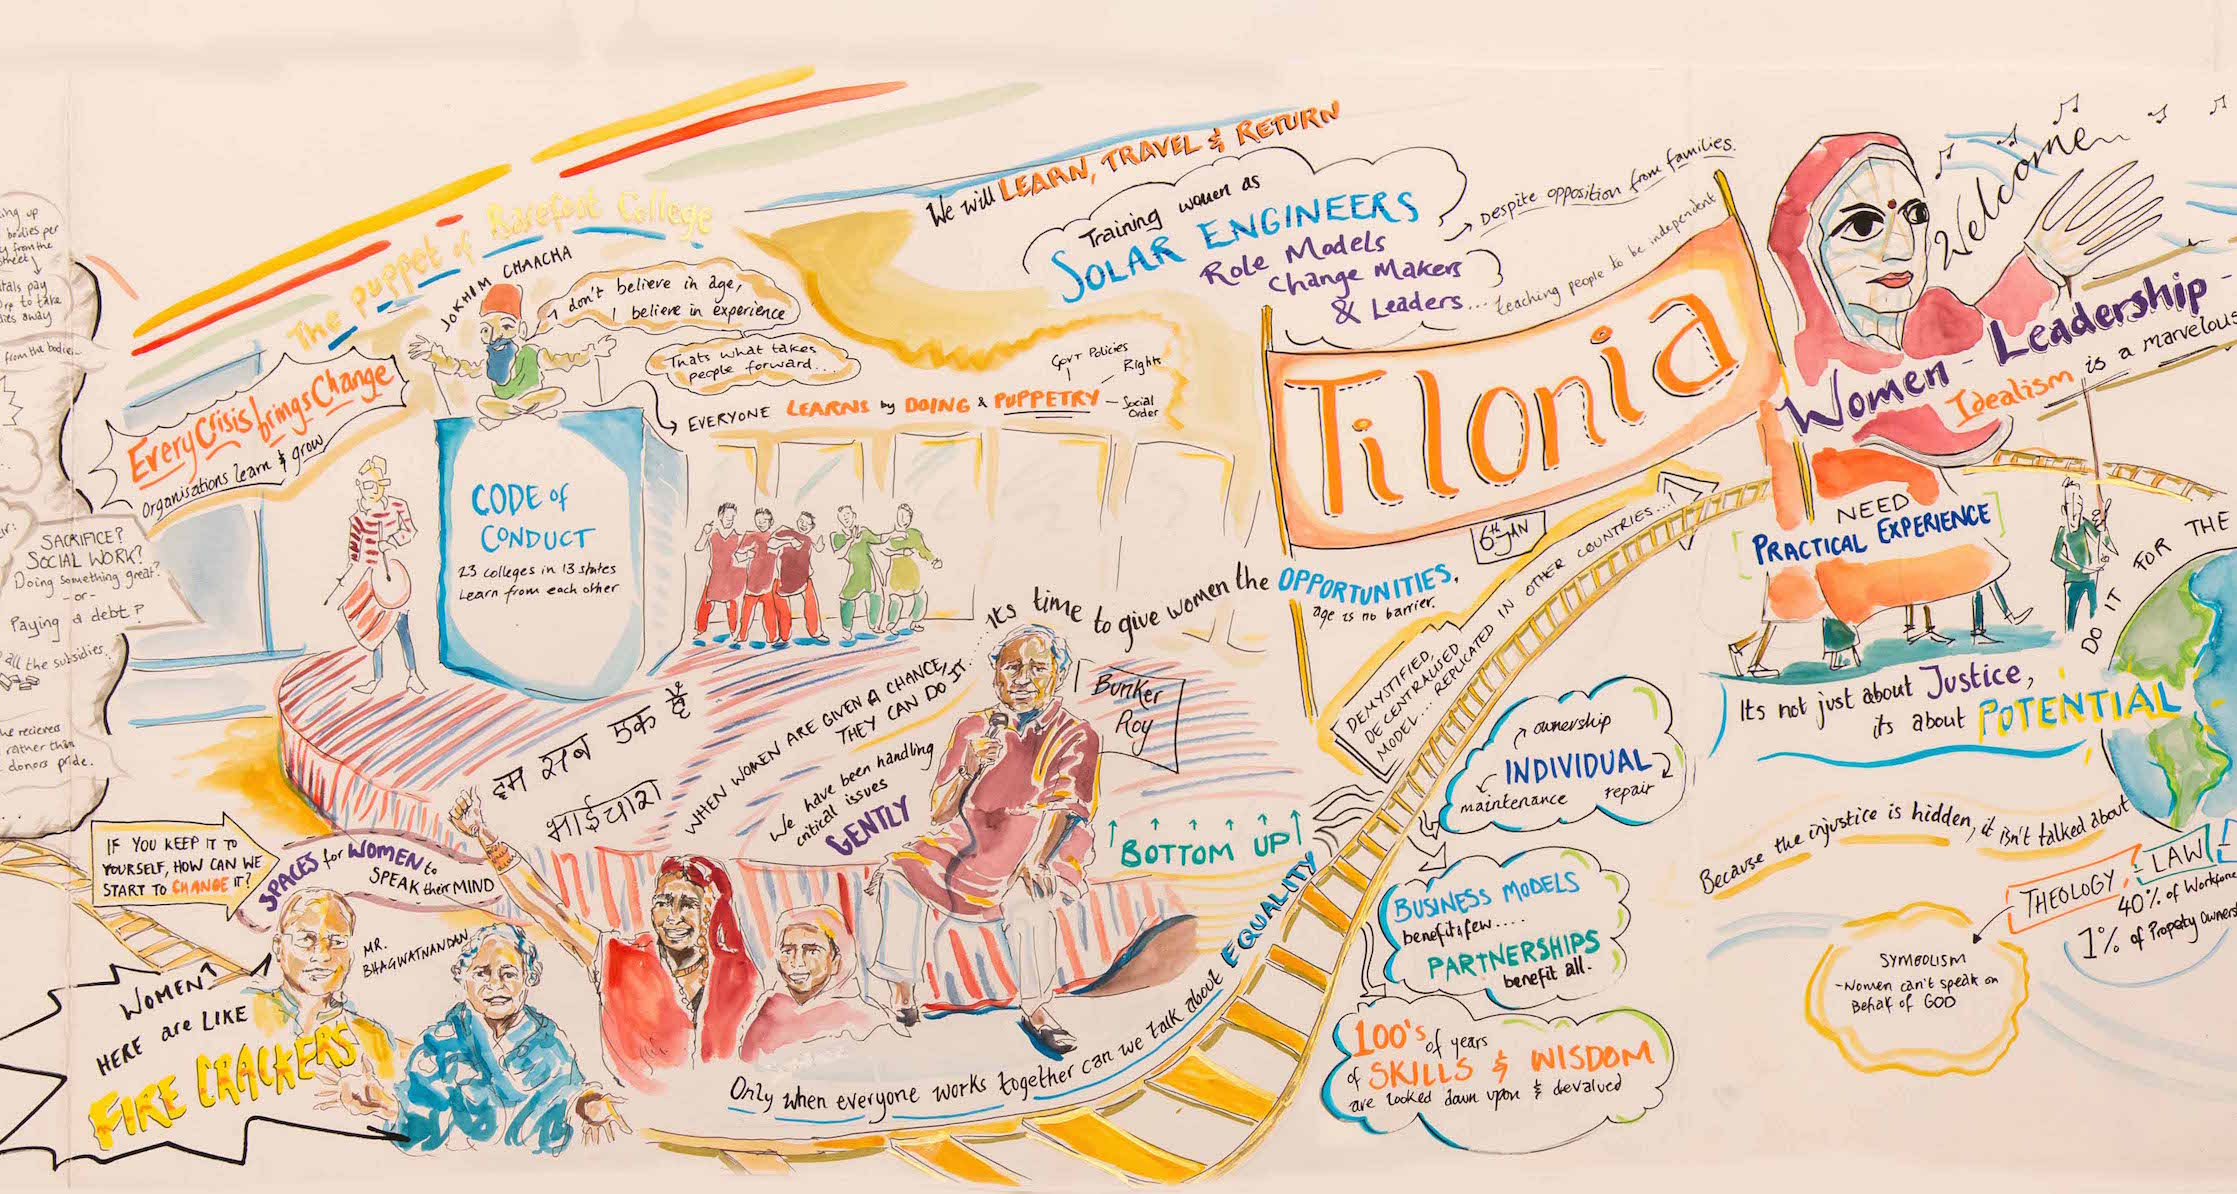 from the bodies
SACRIFICE?
SOCIAL WORK?
Doing something great?
-or-
Paying a debt?
all the subsidies.
rather than
donors pride.
Every Crisis brings Change
Organisations learn & grow
The puppet of Barefoot College
JOKHIM CHAACHA
I don't believe in age,
I believe in experience
Thats what takes
people forward...
EVERYONE LEARNS by DOING & PUPPETRY
Govt Policies
Rights
Social
Order
CODE of
CONDUCT
23 colleges in 13 states
Learn from each other
We will LEARN, TRAVEL & RETURN
Training women as
SOLAR ENGINEERS
Role Models
Change Makers
& Leaders...
Despite opposition from families.
teaching people to be independent
Tilonia
6th JAN
Its time to give women the OPPORTUNITIES.
age is no barrier.
हम सब एक हैं
भाईचारा
WHEN WOMEN ARE GIVEN A CHANCE,
THEY CAN DO IT...
We have been handling
critical issues
GENTLY
Bunker
Roy
BOTTOM UP
IF YOU KEEP IT TO
YOURSELF, HOW CAN WE
START TO CHANGE IT?
SPACES for WOMEN to
SPEAK their MIND
MR.
BHAGWATNANDAN
WOMEN
HERE are LIKE
FIRE CRACKERS
Only when everyone works together can we talk about EQUALITY
DEMYSTIFIED,
DECENTRALISED
MODEL... REPLICATED IN OTHER COUNTRIES...
ownership
INDIVIDUAL
maintenance repair
BUSINESS MODELS
benefits few....
PARTNERSHIPS
benefit all.
100's of years
of SKILLS & WISDOM
are looked down upon & devalued
Welcome
Women-Leadership-
Idealism is a marvelous
NEED
PRACTICAL EXPERIENCE
DO IT FOR THE
Its not just about Justice,
its about POTENTIAL
Because the injustice is hidden, it isn't talked about
THEOLOGY : LAW
40% of Workforce
1% of Property Owners
SYMBOLISM
-Women can't speak on
Behalf of GOD